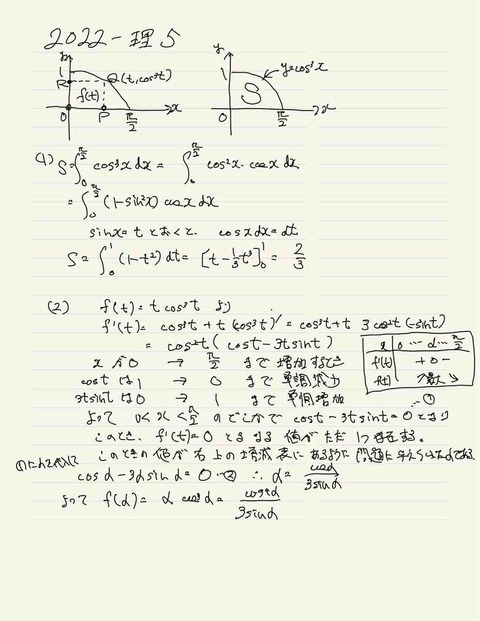 2022-理5
y
1
R
Q(t, cos³t)
f(t)
0
P
π/2
x
y
1
y=cos³x
S
0
π/2
x
(1) S=∫₀^{π/2} cos³x dx = ∫₀^{π/2} cos²x·cosx dx
=∫₀^{π/2} (1-sin²x) cosx dx
sinx=t とおくと、 cosxdx=dt
S=∫₀¹(1-t²)dt=[t-1/3t³]₀¹=2/3
(2) f(t)=t cos³t より
f'(t)= cos³t+t(cos³t)'=cos³t+t 3cos²t(-sint)
= cos²t(cost-3tsint)
x が 0 → π/2 まで増加するとき
cost は 1 → 0 まで単調減少
3tsint は 0 → まで単調増加
よって 0<x<π/2 のどこかで cost-3tsint=0 となり ①
x 0 … α … π/2
f'(t) + 0 -
f(t)
このとき、f'(t)=0 となる 値がただ1つ存在する。
このときの値が右上の増減表にあるように
①に 代入して
cosα-3αsinα=0 ② ∴ α=cosα/3sinα
よって f(α)= α cos³α=cos⁴α/3sinα